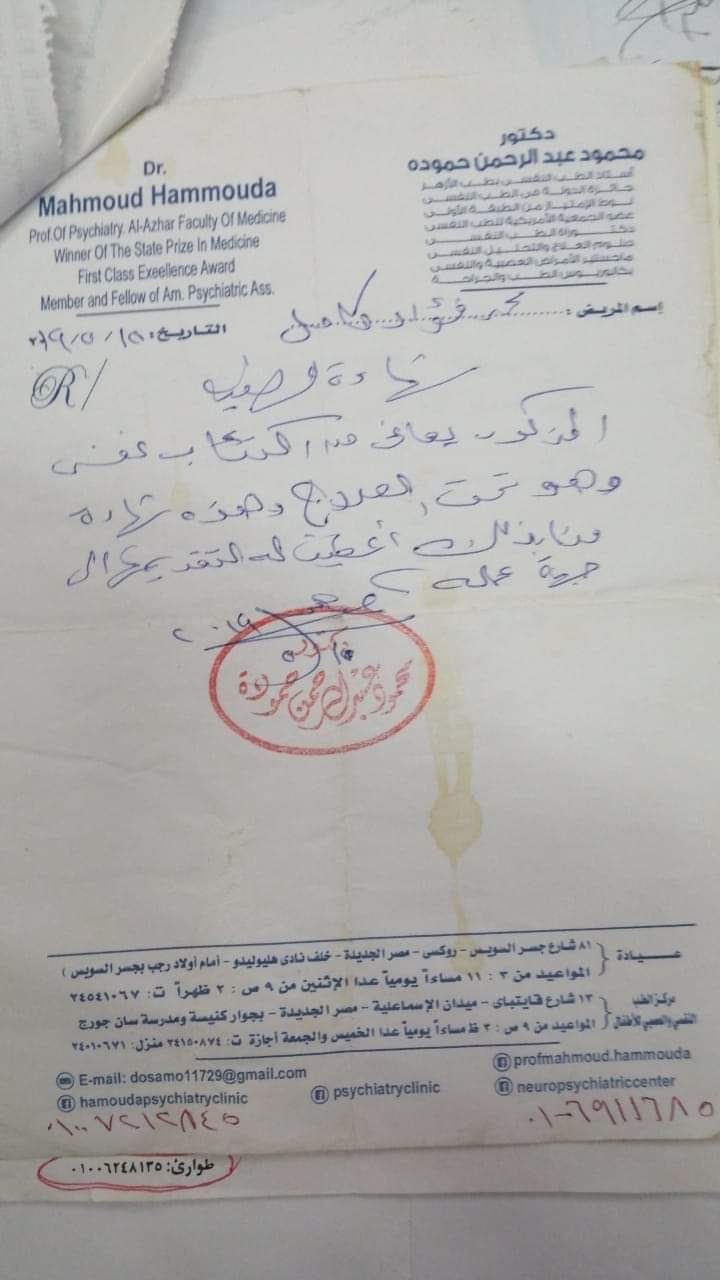 Dr.
Mahmoud Hammouda
Prof.Of Psychiatry. Al-Azhar Faculty Of Medicine
Winner Of The State Prize In Medicine
First Class Exeellence Award
Member and Fellow of Am. Psychiatric Ass.
دكتور
محمود عبد الرحمن حموده
أستاذ الطب النفسى بطب الأزهر
جائزة الدولة فى الطب النفسى
نوط الإمتياز من الطبقة الأولى
عضو الجمعية الأمريكية للطب النفسى
دكتوراة الطب النفسى
دبلوم العلاج والتحليل النفسى
ماجستير الأمراض العصبية والنفسية
بكالوريوس الطب والجراحة
إسم المريض : محمد فؤاد كامل
التاريخ:
R/
شهادة طبية
المذكور يعانى من اكتئاب نفسى
وهو تحت العلاج وهذه شهادة
منا بذلك أعطيت له لتقديمها الى
جهة عمله
٢٠١٩
دكتور
محمود عبد الرحمن حمودة
عيادة { ٨١ شارع جسر السويس - روكسى - مصر الجديدة - خلف نادى هليوليدو - أمام أولاد رجب بجسر السويس )
المواعيد من ٣ : ١١ مساءاً يومياً عدا الإثنين من ٩ ص : ٢ ظهراً ت: ٢٤٥٤١٠٦٧
مركز الطب النفسى والعصبى للأطفال { ١٣ شارع قايتباى - ميدان الإسماعلية - مصر الجديدة - بجوار كنيسة ومدرسة سان جورج
المواعيد من ٩ ص : ٣ ظ مساءاً يومياً عدا الخميس والجمعة أجازة ت: ٢٤١٥٠٨٧٤ منزل: ٢٤٠١٠٦٧١
E-mail: dosamo11729@gmail.com
profmahmoud.hammouda
hamoudapsychiatryclinic
psychiatryclinic
neuropsychiatriccenter
٠١٠٠٧٢١٢٨٤٥
طوارئ: ٠١٠٠٦٢٤٨١٣٥